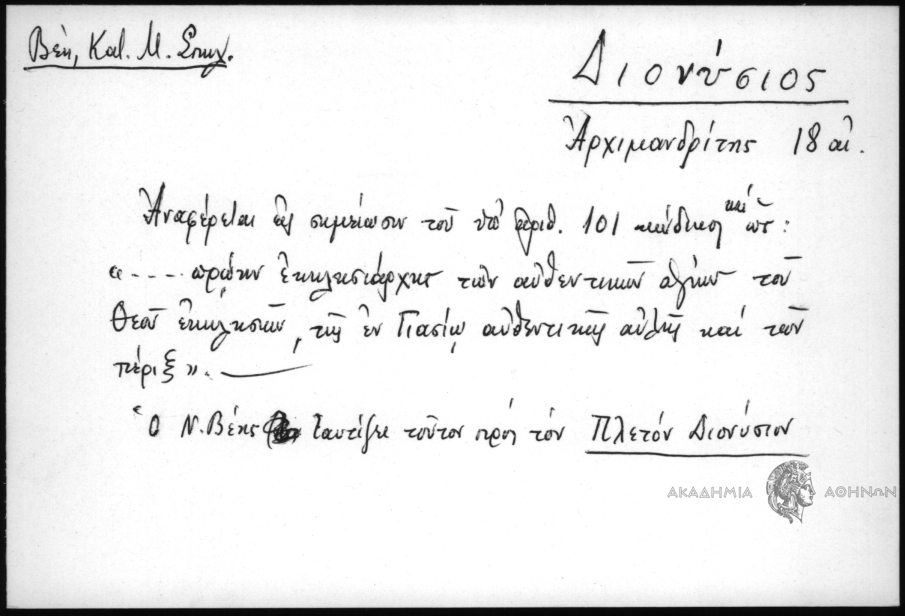 Βέη, Κατ. Μ. Σπηλ.
Διονύσιος
Ἀρχιμανδρίτης 18 αἰ.
Ἀναφέρεται εἰς σημείωσιν τοῦ ὑπ' ἀριθ. 101 κώδικος καί ὡς :
«- - - - πρώην ἐκκλησιάρχης τῶν αὐθεντικῶν ἁγίων τοῦ
Θεοῦ ἐκκλησιῶν, τῆς ἐν Γιασίῳ αὐθεντικῆς αὐλῆς καί τῶν
πέριξ».
Ὁ Ν. Βέης ταυτίζει τοῦτον πρός τόν Πλετόν Διονύσιον
ΑΚΑΔΗΜΙΑ ΑΘΗΝΩΝ